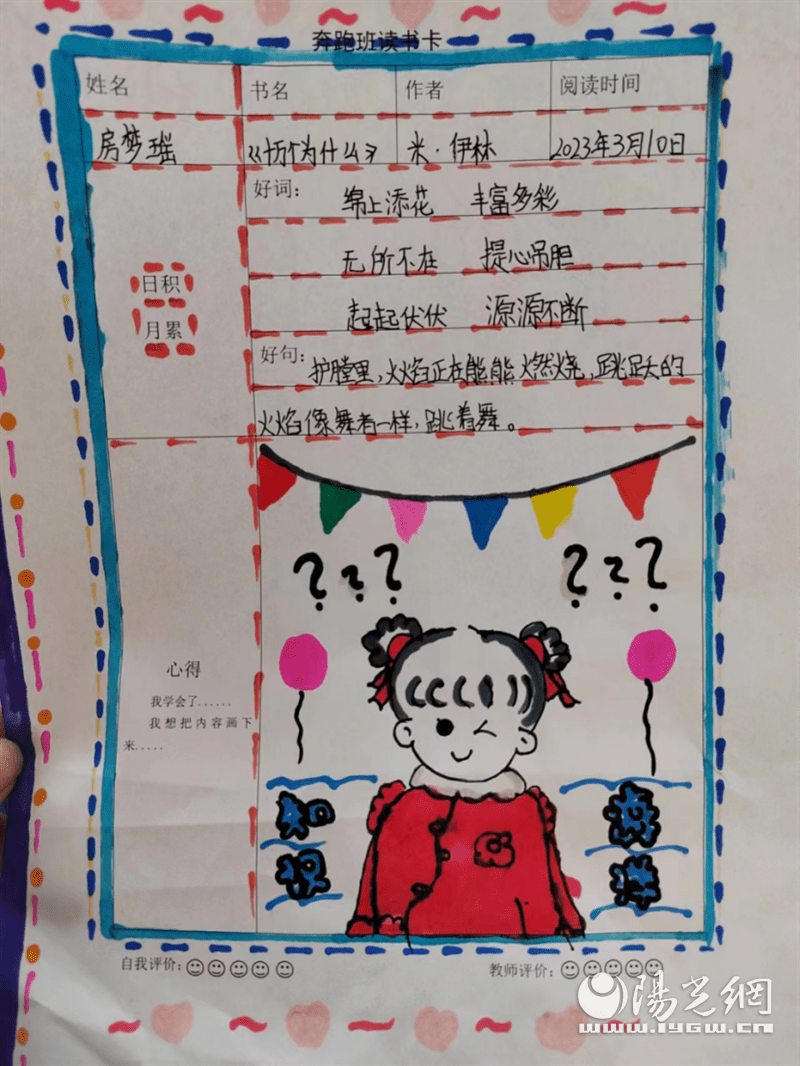 奔跑班读书卡
姓名 书名 作者 阅读时间
房梦瑶 《十万个为什么》 米·伊林 2023年3月10日
好词： 绵上添花 丰富多彩
无所不在 提心吊胆
起起伏伏 源源不断
日积
月累
好句： 护膛里，火焰正在熊熊燃烧，跳跃的
火焰像舞者一样，跳着舞。
? ? ? ? ? ?
心得
我学会了......
我想把内容画下
来.....
知识
海洋
自我评价： 教师评价：
阳光網
www.iygw.cn